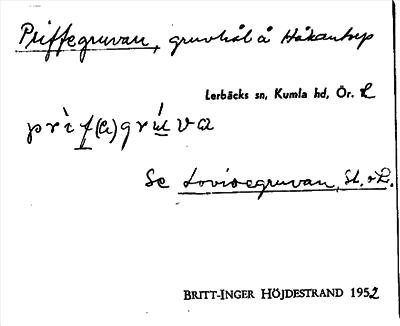 Priffegruvan, gruvhål å Håkantorp
Lerbäcks sn, Kumla hd, Ör. L
prìf(a)grúva
Se Lovisegruvan, St. o L.
BRITT-INGER HÖJDESTRAND 1952